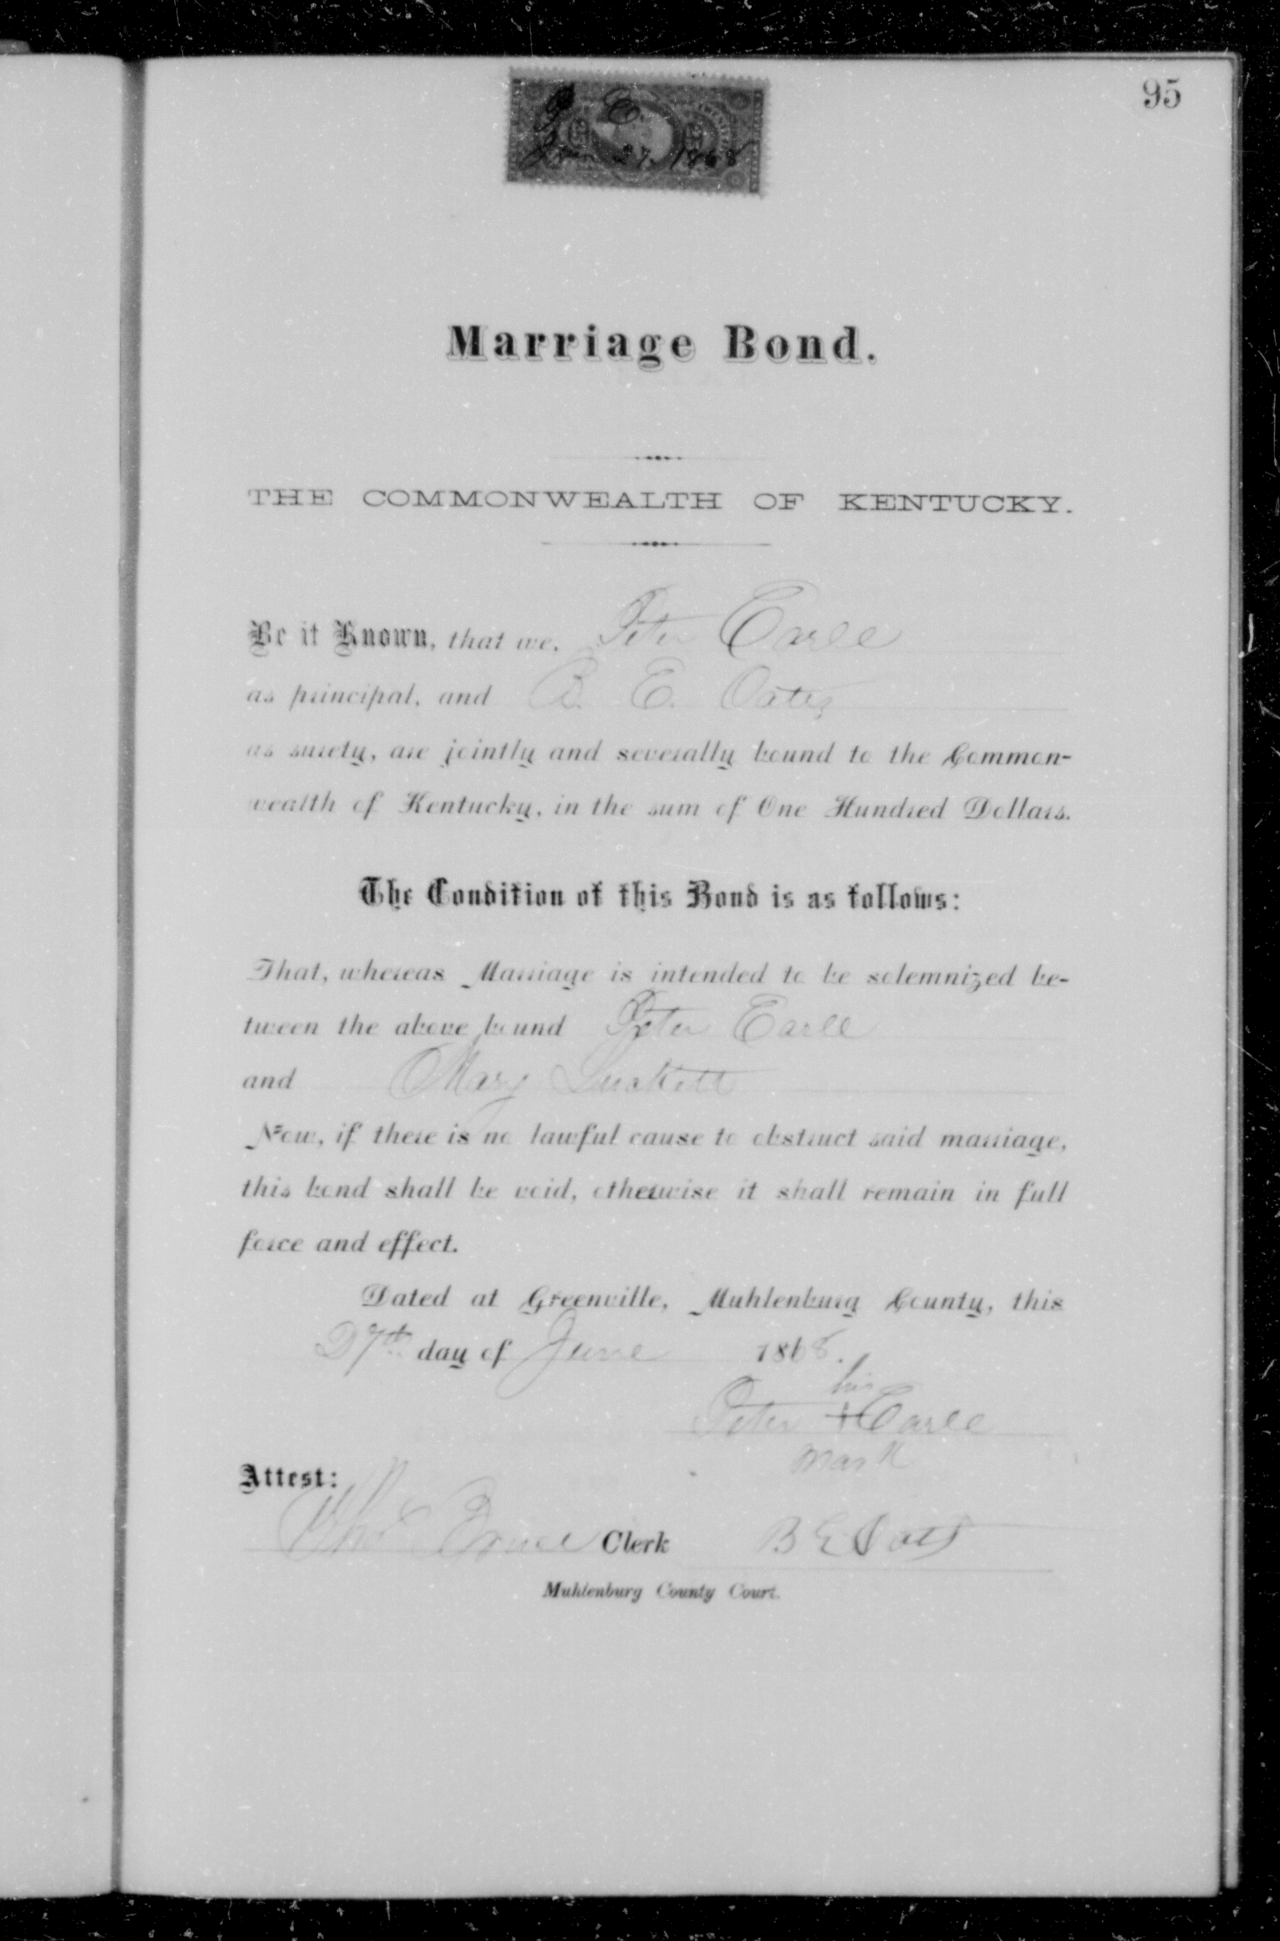 95
P. E.
June 27. 1868
Marriage Bond.
THE COMMONWEALTH OF KENTUCKY.
Be it Known, that we, Peter Earle
as principal, and B. E. Oates
as surety, are jointly and severally bound to the Common-
wealth of Kentucky, in the sum of One Hundred Dollars.
The Condition of this Bond is as follows:
That, whereas Marriage is intended to be solemnized be-
tween the above bound Peter Earle
and Mary Luckett
Now, if there is no lawful cause to obstruct said marriage,
this bond shall be void, otherwise it shall remain in full
force and effect.
Dated at Greenville, Muhlenburg County, this
27th day of June 1868.
his
Peter + Earle
mark
Attest:
Bruce Clerk B E Oates
Muhlenburg County Court.